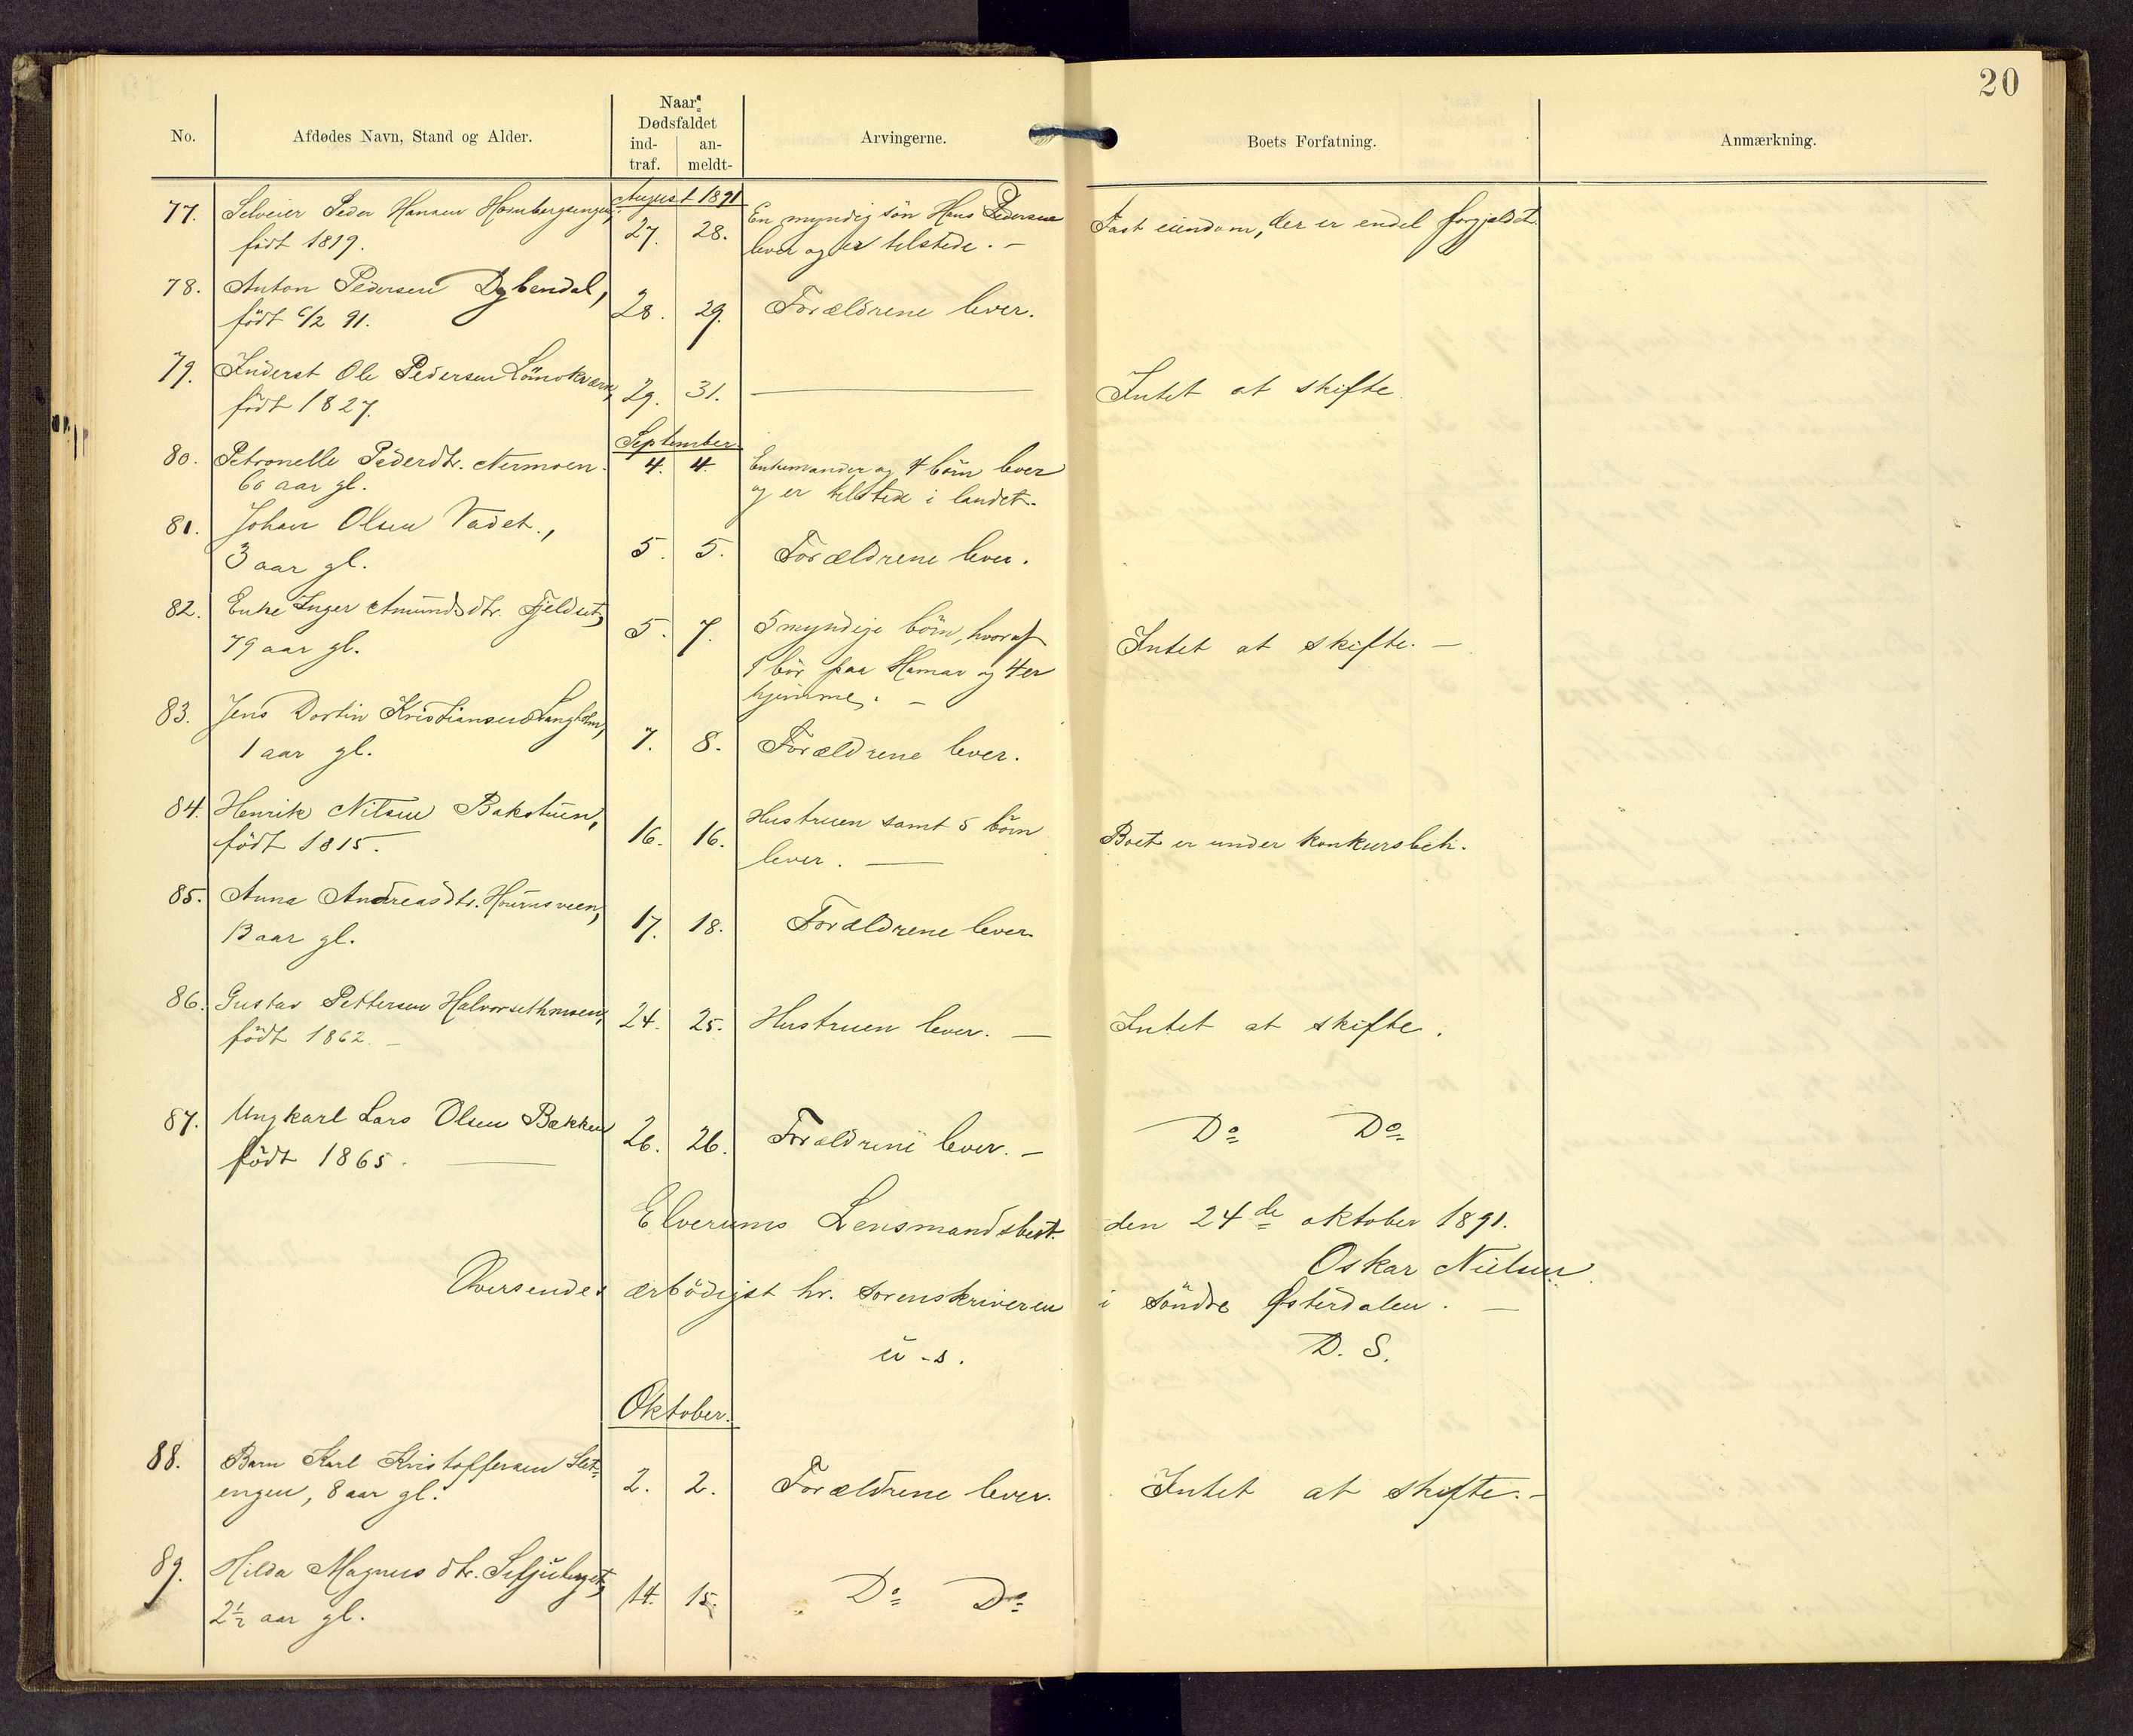 20
No.
Afdødes Navn, Stand og Alder.
Naar
Dødsfaldet
ind-
traf.
an-
meldt-
Arvingerne.
Boets Forfatning.
Anmærkning.
August 1891
77. Selveier Peder Hansen Hornbergsengen, 27. 28. En myndig sön Hans Pedersen Fast eiendom, der er endel forgjeldet.
födt 1819. lever og er tilstede. –
78. Anton Pedersen Dybendal, 28. 29. Forældrene lever.
födt 6/2 91.
79. Inderst Ole Pedersen 29. 31. Intet at skifte
födt 1827.
September
80. Petronelle Pederdtr. Nermoen. 4. 4. Enkemanden og 4 börn lever
60 aar gl. og er tilstede i landet.
81. Johan Olsen Vadet.,
3 aar gl. 5. 5. Forældrene lever.
82. Enke Inger Amundsdtr. Fjeldset, 5. 7. 5 myndige börn, hvoraf Intet at skifte. –
79 aar gl. 1 bor paa Hamar og 4 er
hjemme. –
83. Jens Dortin Kristiansen Langholm, 7. 8. Forældrene lever.
1 aar gl.
84. Henrik Nilsen Bakstuen, 16. 16. Hustruen samt 5 börn Boet er under konkursbeh.
födt 1815. lever.
85. Anna Andreasdtr. 17. 18. Forældrene lever.
13 aar gl.
86. Gustav Pettersen Halvorsethmoen, 24. 25. Hustruen lever. – Intet at skifte.
födt 1862. –
87. Ungkarl Lars Olsen Bakken 26. 26. Forældrene lever. – Do Do
födt 1865.
Elverums Lensmandsbest. den 24de oktober 1891.
Oskar Nielsen.
Oversendes ærbödigst hr. sorenskriveren i söndre Østerdalen. –
u. s. D. S.
Oktober.
88. Barn Karl Kristoffersen Slet- 2. 2. Forældrene lever. Intet at skifte. –
engen, 8 aar gl.
89. Hilda Magnusdtr. 14. 15. Do Do
2½ aar gl.